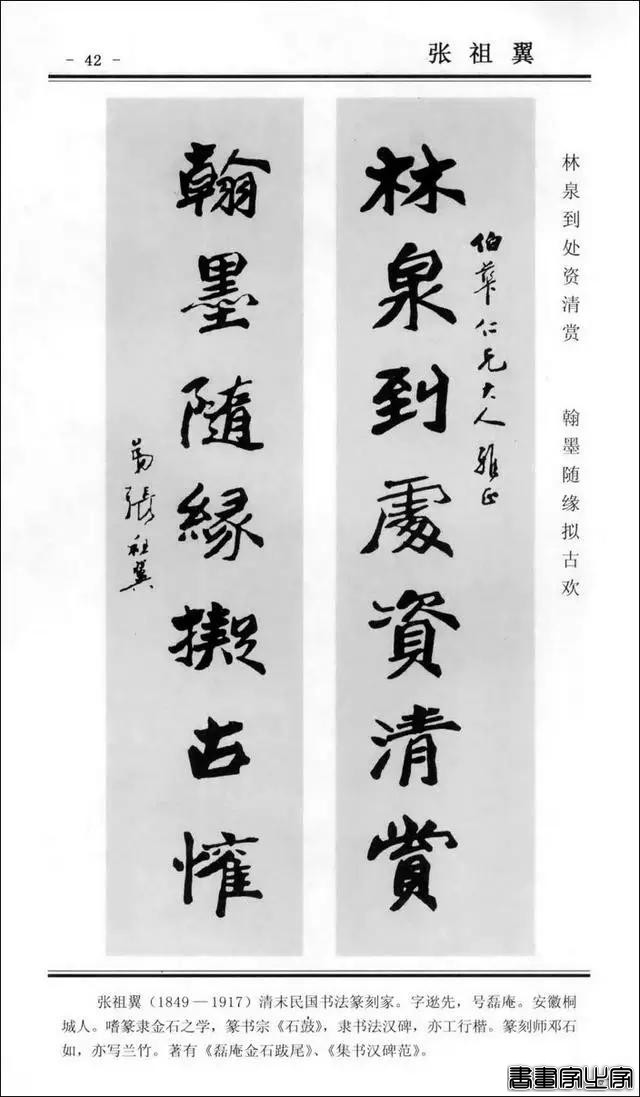 - 42 -
张祖翼
林泉到处资清赏
翰墨随缘拟古欢
林泉到處資清賞
伯華仁兄大人雅正
翰墨隨緣擬古懽
弟張祖翼
张祖翼（1849—1917）清末民国书法篆刻家。字逖先，号磊庵。安徽桐
城人。嗜篆隶金石之学，篆书宗《石鼓》，隶书法汉碑，亦工行楷。篆刻师邓石
如，亦写兰竹。著有《磊庵金石跋尾》、《集书汉碑范》。
書畫家必字